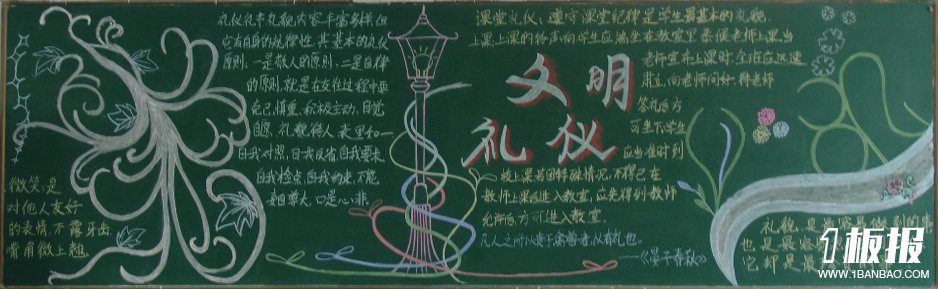 礼仪礼节礼貌内容丰富多样但
它有自身的规律性,其基本的礼仪
原则:一是敬人的原则;二是自律
的原则,就是在交往过程中要
克己,慎重,积极主动,自觉
自愿,礼貌待人,表里如一
自我对照,自我反省,自我要求
自我检点,自我约束,不能
妄自尊大,口是心非。
微笑,是
对他人友好
的表情,不露牙齿
嘴角微上翘。
文明
礼仪
课堂礼仪:遵守课堂纪律是学生最基本的礼貌
上课上课的铃声响学生应端坐在教室里恭候老师上课当
老师宣布上课时,全班应迅速
肃立,向老师问好,待老师
答礼后方
可坐下学生
应当准时到
校上课若因特殊情况,不得已在
教师上课后进入教室,应先得到教师
允许后方可进入教室。
凡人之所以贵于禽兽者,以有礼也。
——《晏子春秋》
礼貌,是最容易做到的事
也是最容
它却是最
1板报
WWW.1BANBAO.COM